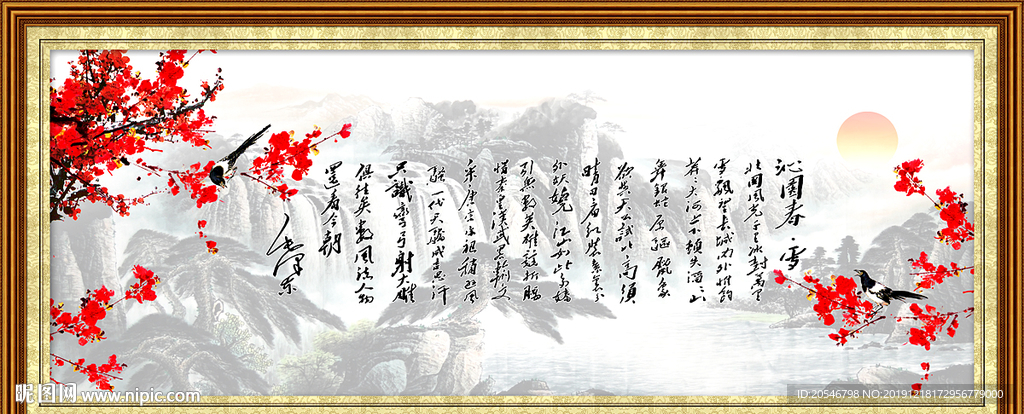 沁園春 雪
北国風光千里冰封萬里
雪飘望长城内外惟馀
莽莽大河上下顿失滔滔山
舞银蛇原驰腊象
欲与天公试比高须
晴日看红装素裹分
外妖娆江山如此多娇
引无数英雄竞折腰
惜秦皇漢武略输文
采唐宗宋祖稍逊风
骚一代天骄成吉思汗
只識彎弓射大雕
俱往矣数風流人物
還看今朝
毛澤东
昵图网 www.nipic.com
ID:20546798 NO:20191218172956779000